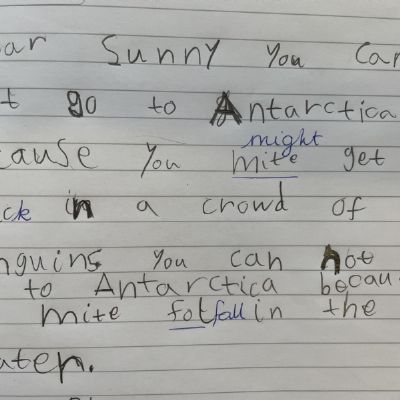 ar Sunny you Can
t go to Antarctica
might
cause you mite get
ck in a crowd of
nguins you can not
to Antarctica becau
mite fot fall in the
ater.